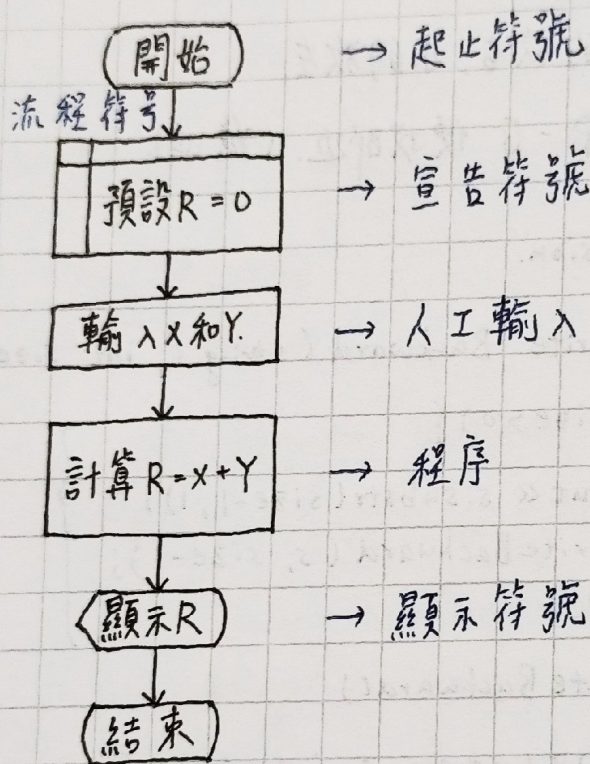 開始 → 起止符號
流程符号
預設R=0 → 宣告符號
輸入X和Y. → 人工輸入
計算R=X+Y → 程序
顯示R → 顯示符號
結束